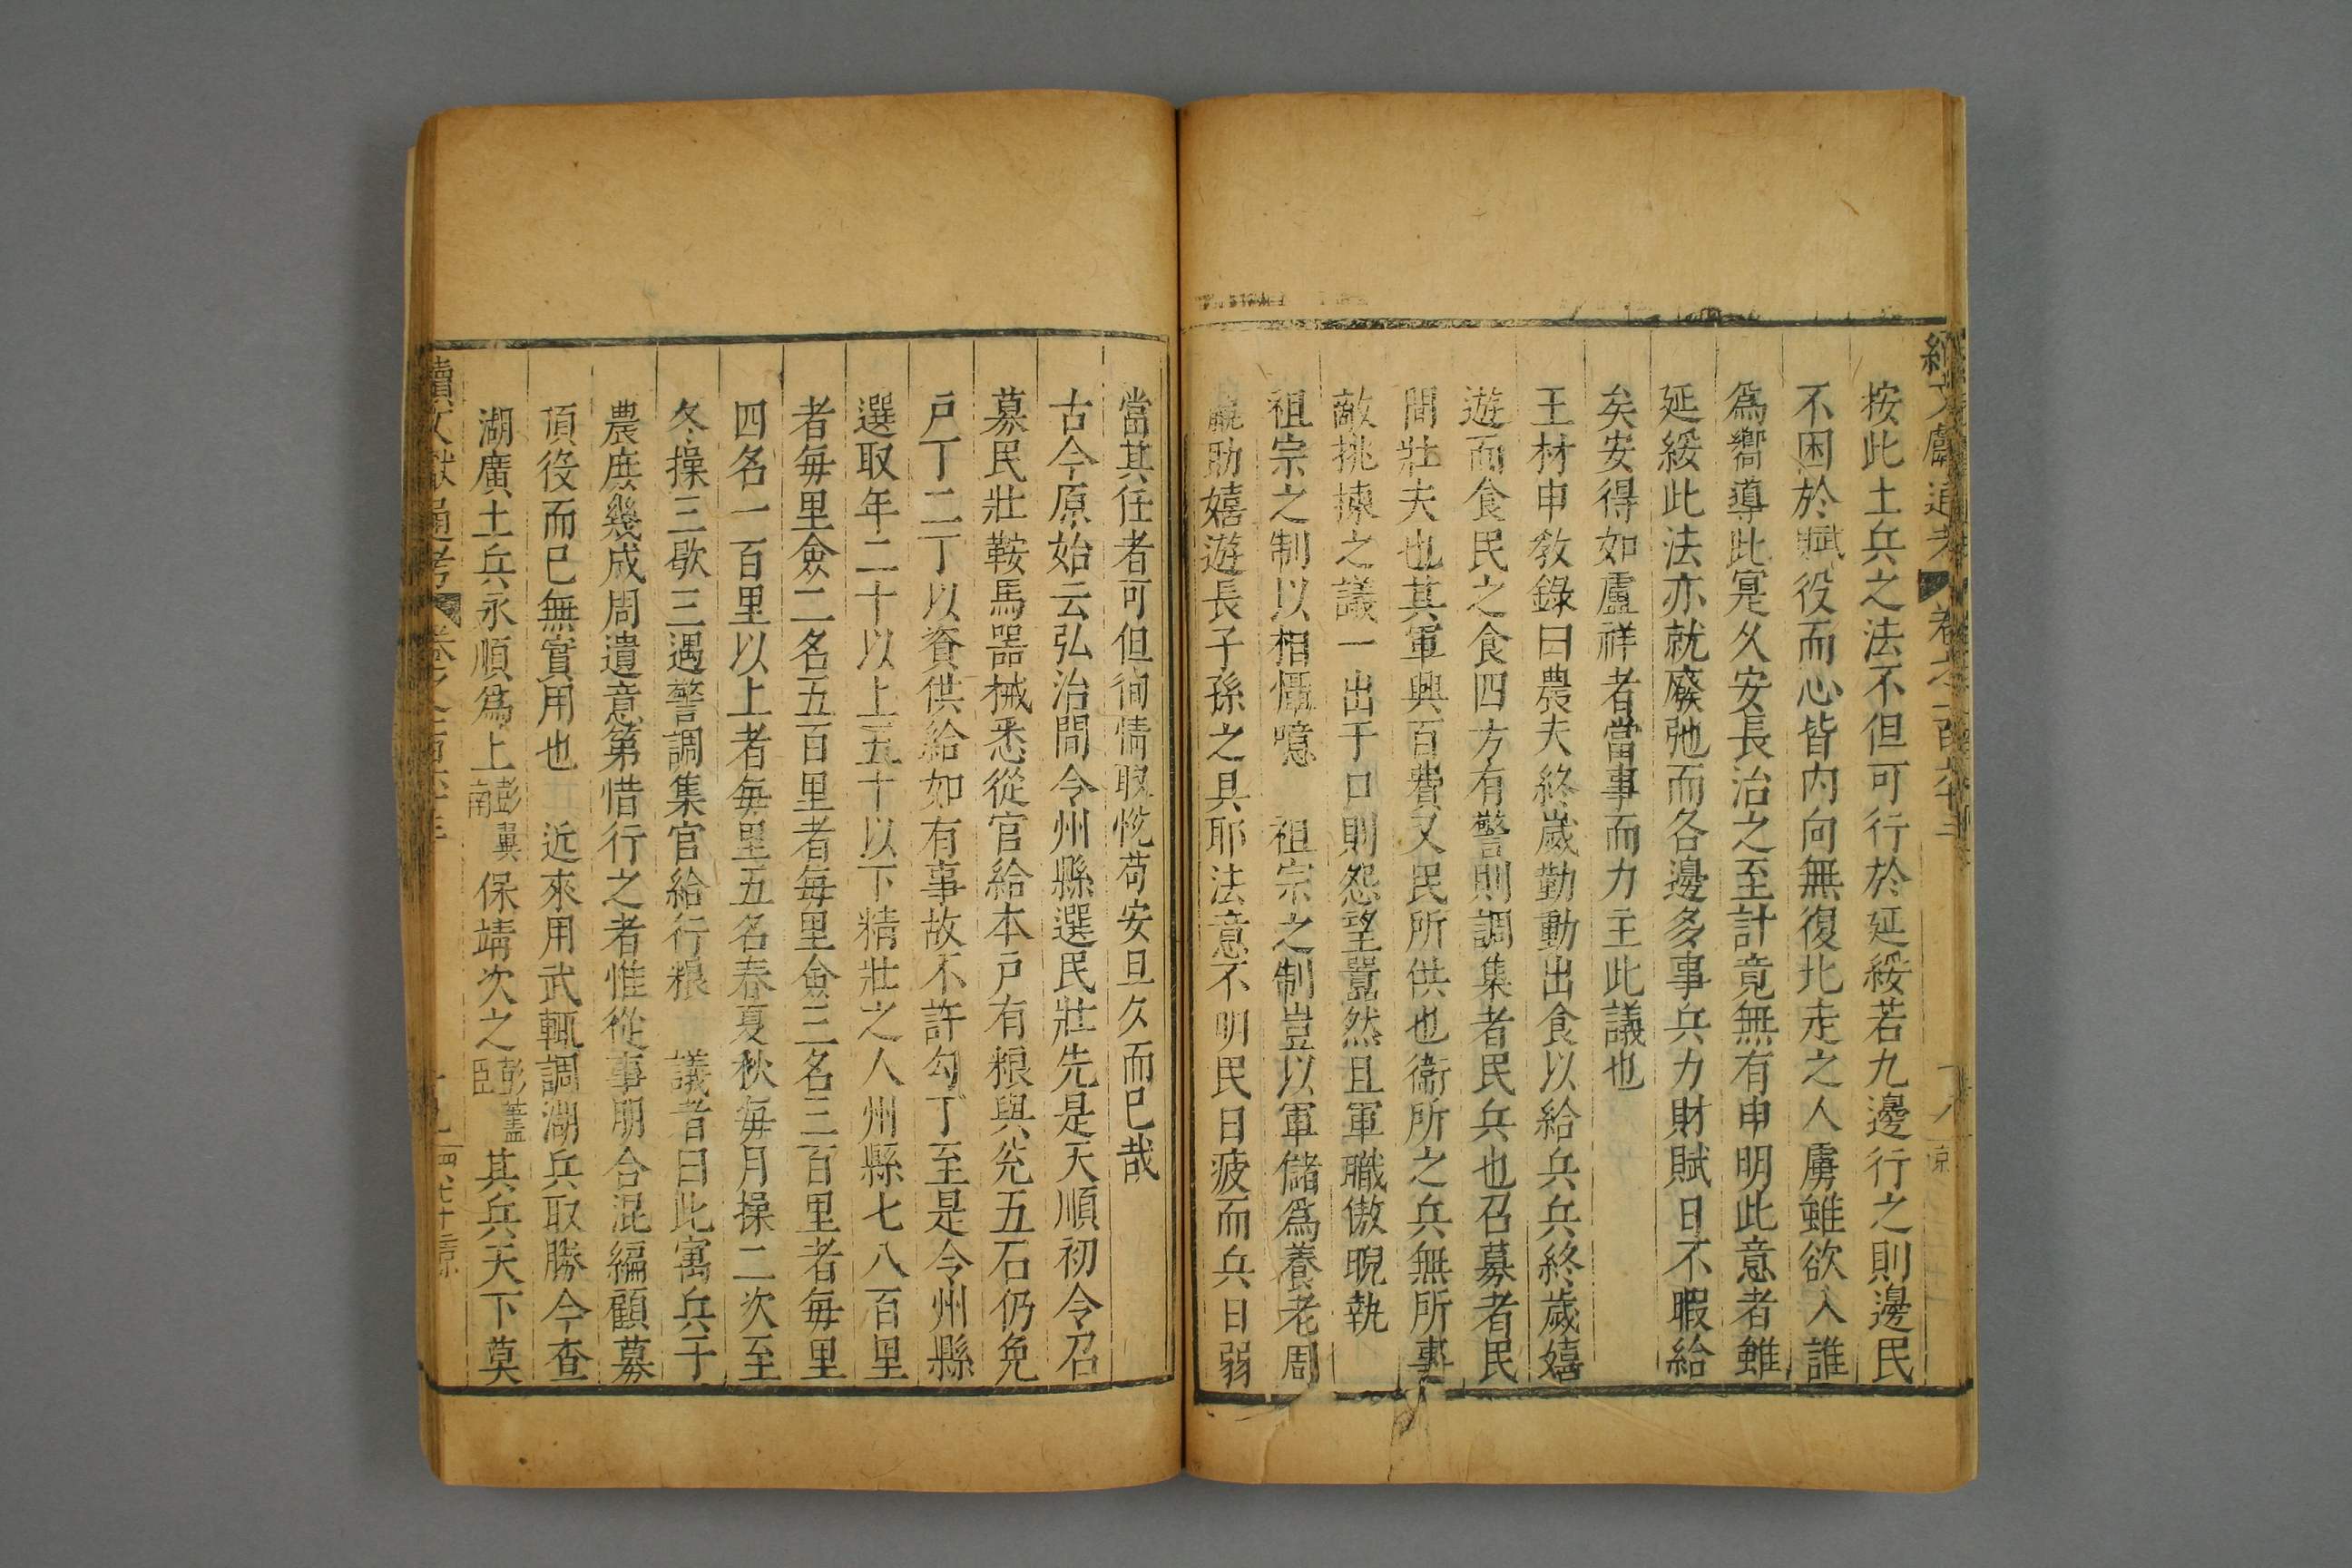 按此土兵之法不但可行於延綏若九邊行之則邊民
不困於賦役而心皆内向無復北走之人虜雖欲入誰
爲嚮導此寔久安長治之至計竟無有申明此意者雖
延綏此法亦就廢弛而各邊多事兵力財賦日不暇給
矣安得如盧祥者當事而力主此議也
王材申敎錄曰農夫終歲勤動出食以給兵兵終歲嬉
遊而食民之食四方有警則調集者民兵也召募者民
間壯夫也其軍興百費又民所供也衞所之兵無所事
敵挑揀之議一出于口則怨望囂然且軍職傲睨執
祖宗之制以相懾噫 祖宗之制豈以軍儲爲養老周
助嬉遊長子孫之具耶法意不明民日疲而兵日弱
當其任者可但徇情取悅苟安旦久而已哉
古今原始云弘治間令州縣選民壯先是天順初令召
募民壯鞍馬噐械悉從官給本戸有粮與免五石仍免
戸丁二丁以資供給如有事故不許勾丁至是令州縣
選取年二十以上五十以下精壯之人州縣七八百里
者每里僉二名五百里者每里僉三名三百里者每里
四名一百里以上者每里五名春夏秋每月操二次至
冬操三歇三遇警調集官給行粮 議者曰此寓兵于
農庶幾成周遺意第惜行之者惟從事朋合混編顧募
頂役而已無實用也 近來用武輒調湖兵取勝今查
湖廣土兵永順爲上彭翼南保靖次之彭藎臣其兵天下莫
續文獻通考 卷之